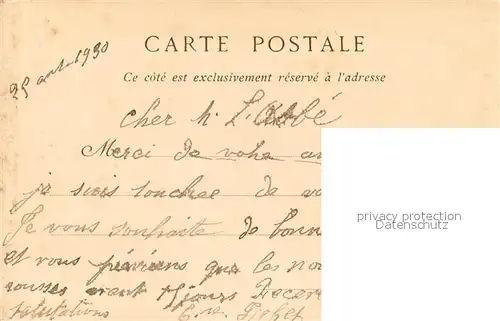 25 aout 1930
CARTE POSTALE
Ce côté est exclusivement réservé à l'adresse
cher M. L'Abbé
Merci de votre
je suis touchée de
Je vous souhaite de bonn
et vous préviens que les
rousses sont tjours
salutations
privacy protection
Datenschutz